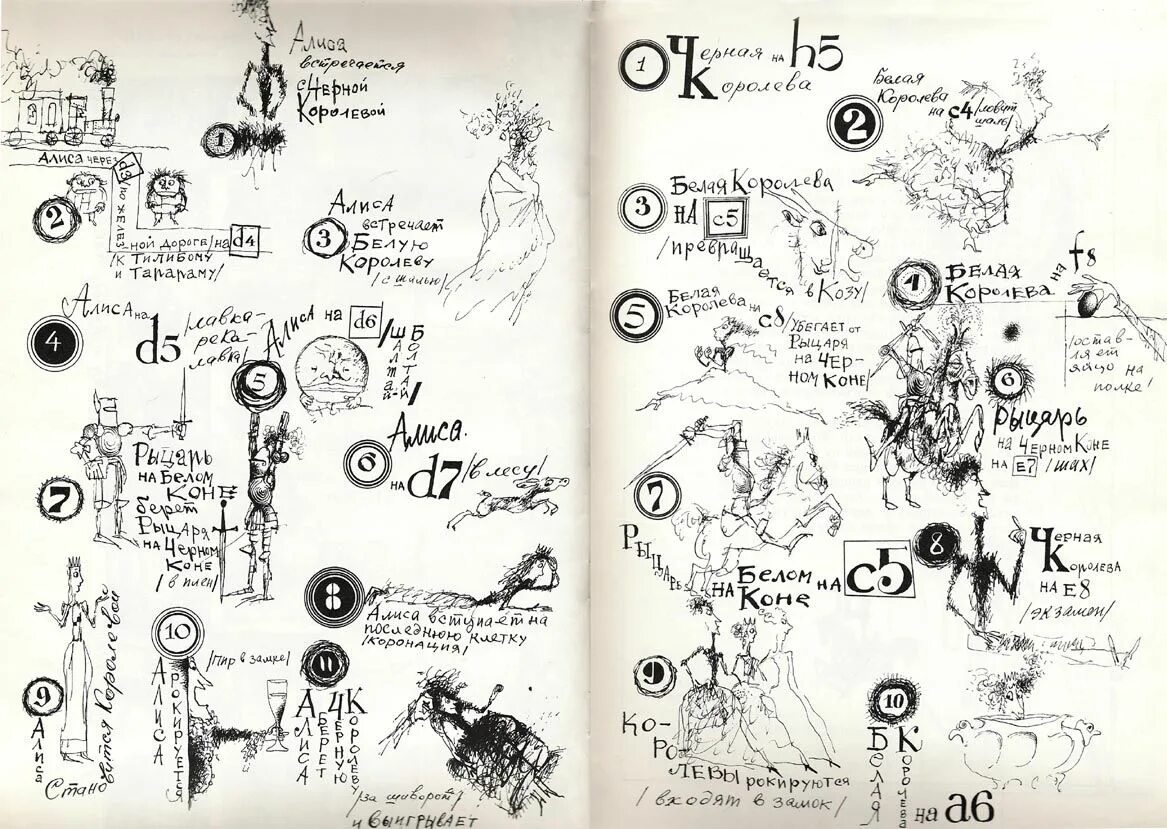 1
Алиса
встречается
с Чёрной
Королевой
2
Алиса через
d3 по желез-
ной дороге/ на d4
/к Тилибому
и Тарараму/
3
Алиса
встречает
Белую
Королеву
/с шалью/
4
Алиса на
d5 /лавка-
река-
лавка/
5
Алиса на d6
/Шалтай-
Болтай/
6
Алиса
на d7 /в лесу/
7
Рыцарь
на Белом
Коне
берет
Рыцаря
на Черном
Коне
/в плен/
8
Алиса вступает на
последнюю клетку
/коронация/
9
Алиса
Становится Королевой
10
Алиса
рокируется
/пир в замке/
11
Алиса
берет
Чёрную
Королеву
/за шиворот/
и выигрывает
1
Черная на h5
Королева
2
Белая
Королева
на c4 /ловит
шаль/
3
Белая Королева
на c5
/превращается в Козу/
4
Белая
Королева на f8
/остав-
ляет
яйцо на
полке/
5
Белая
Королева на c8
/убегает от
Рыцаря
на Чер-
ном Коне/
6
Рыцарь
на Черном Коне
на E7 /шах/
7
Рыцарь
на Белом на c5
Коне
8
Черная
Королева
на E8
/экзамен/
9
Ко-
ро-
левы рокируются
/входят в замок/
10
Белая
Королева
на a6